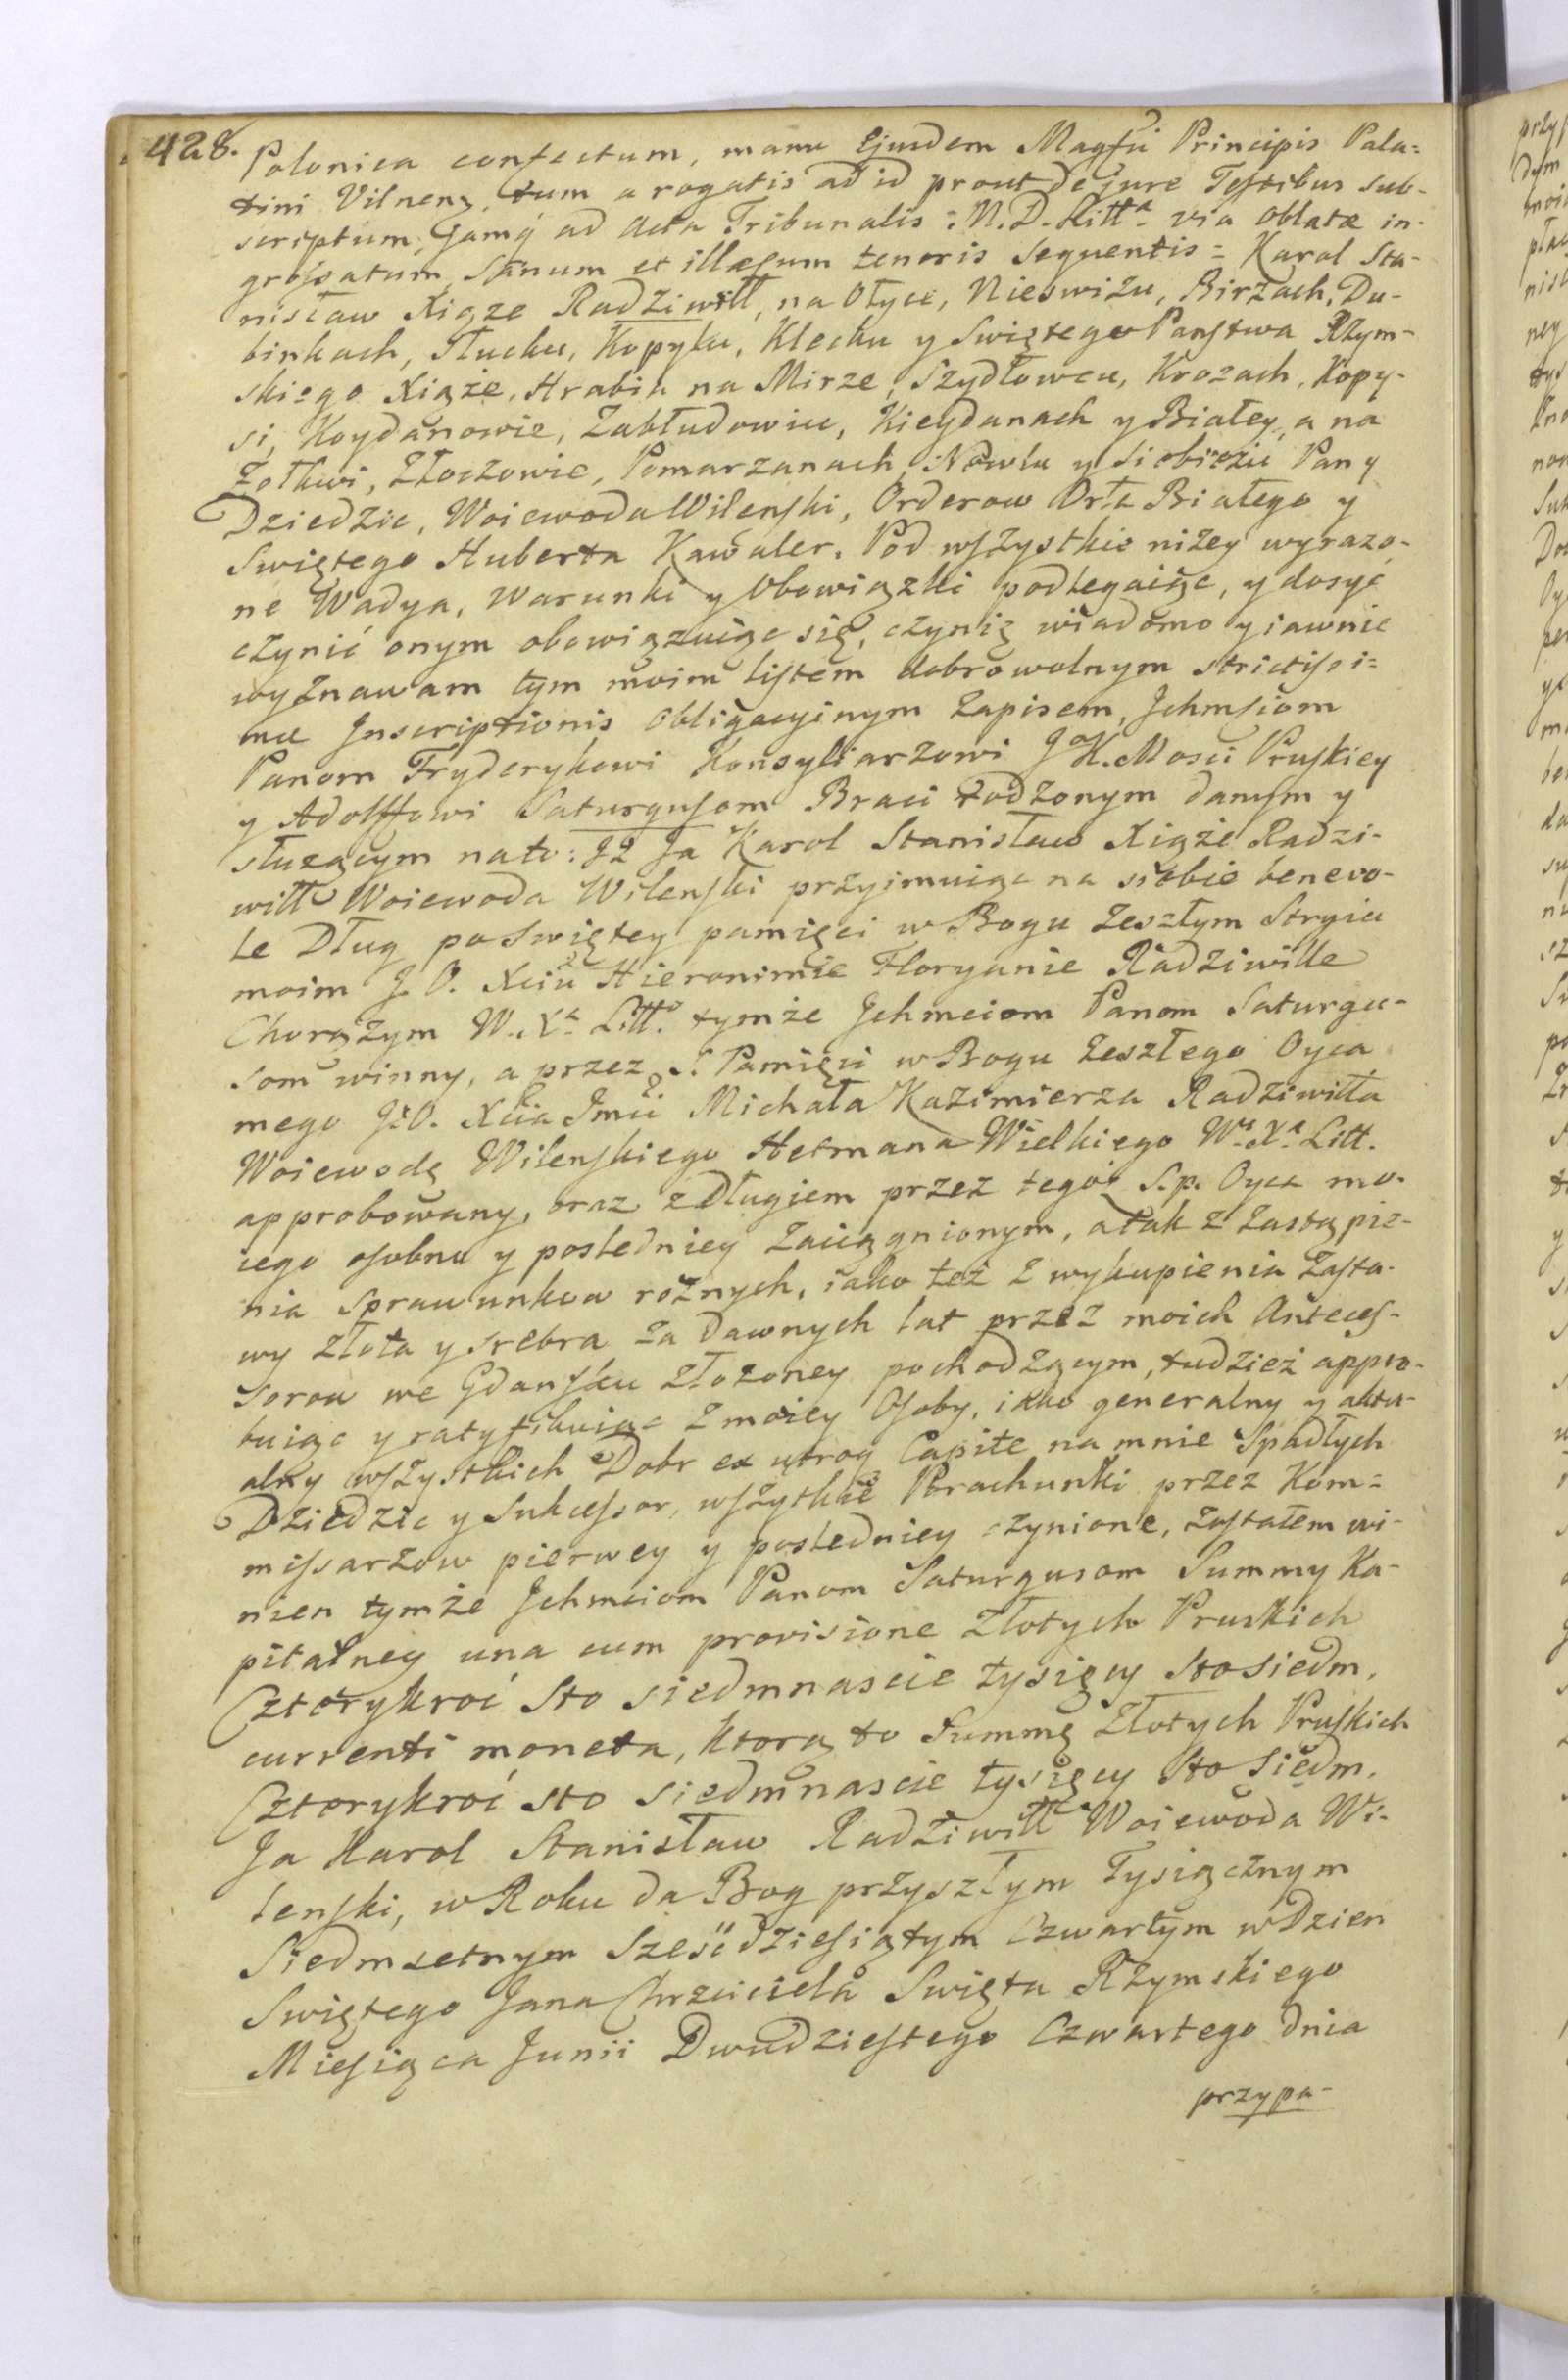 428. Polonica confectum, manu Ejusdem Magfci Principis Pala=
tini Vilnens, tum a rogatis ad id prout de jure Testibus sub-
scriptum, Jamq ad Acta Tribunalis M. D. Litt. via Oblatæ in-
grossatum, Sanum et illæsum tenoris sequentis = Karol Sta-
nisław Xiąze Radziwiłł, na Ołyce, Nieswiżu, Birżach, Du-
binkach, Słucku, Kopylu, Klecku y Swiętego Panstwa Rzym-
skiego Xiąże, Hrabia na Mirze, Szydłowcu, Krozach, Kopy-
si, Koydanowie, Zabłudowiu, Kieydanach y Białey, a na
Żołkwi, Złoczowie, Pomarzanach, Newlu y Siebieżu Pan y
Dziedzic, Woiewoda Wilenski, Orderow Orła Białego y
Swiętego Huberta Kawaler. Pod wszystkie niżey wyrażo-
ne Wadya, Warunki y Obowiązki podlegaiąc, y dosyć
czynić onym obowiązuiąc się, czynię wiadomo y iawnie
wyznawam tym moim listem dobrowolnym strictissi=
mæ Inscriptionis Obligacyinym Zapisem, Jchmsciom
Panom Fryderykowi Konsyliarzowi J K. Mosci Pruskiey
y Adolffowi Saturgusom Braci rodzonym danym y
służącym na to: Iż Ja Karol Stanisław Xiąże Radzi-
wiłł Woiewoda Wilenski przyimuiąc na siebie benevo-
le Dług po Swiętey pamięci w Bogu Zeszłym Stryiu
moim J. O. Xciu Hieronimie Floryanie Radziwille
Chorążym W. Xa Litt. tymże Jchmciom Panom Saturgu-
som winny, a przez S. Pamięci w Bogu Zeszłego Oyca
mego J. O. Xcia Jmci Michała Kazimierza Radziwiłła
Woiewodę Wilenskiego Hetmana Wielkiego W. Xa Litt.
approbowany, oraz z Długiem przez tegoż S. p. Oyca mo-
iego osobno y posledniey Zaciągnionym, a tak z Zastąpie-
nia sprawunkow rożnych, iako też z wykupienia Zasta-
wy Złota y srebra Za dawnych lat przez moich Anteces-
sorow we Gdansku złożoney pochodzącym, tudzież appro-
buiąc y ratyfikuiąc z moiey Osoby, iako generalny y aktu-
alny wszystkich Dobr ex utroq Capite na mnie Spadłych
Dziedzic y Sukcessor, wszytkie Porachunki przez Kom=
missarzow pierwey y posledniey czynione, Zostałem wi-
nien tymże Jchmciom Panom Saturgusom Summy Ka-
pitalney una cum provisione Złotych Pruskich
Cztorykroć Sto siedmnascie tysięcy Sto siedm.
currenti moneta, ktorą to Summę Złotych Pruskich
Cztorykroć sto siedmnascie tysięcy Sto Siedm.
Ja Karol Stanisław Radziwiłł Woiewoda Wi-
lenski, w Roku da Bog przyszłym Tysiącznym
Siedmsetnym Sześćdziesiątym Czwartym w Dzien
Swiętego Jana Chrzciciela Swięta Rzymskiego
Miesiąca Junii Dwudziestego Czwartego dnia
przypa-